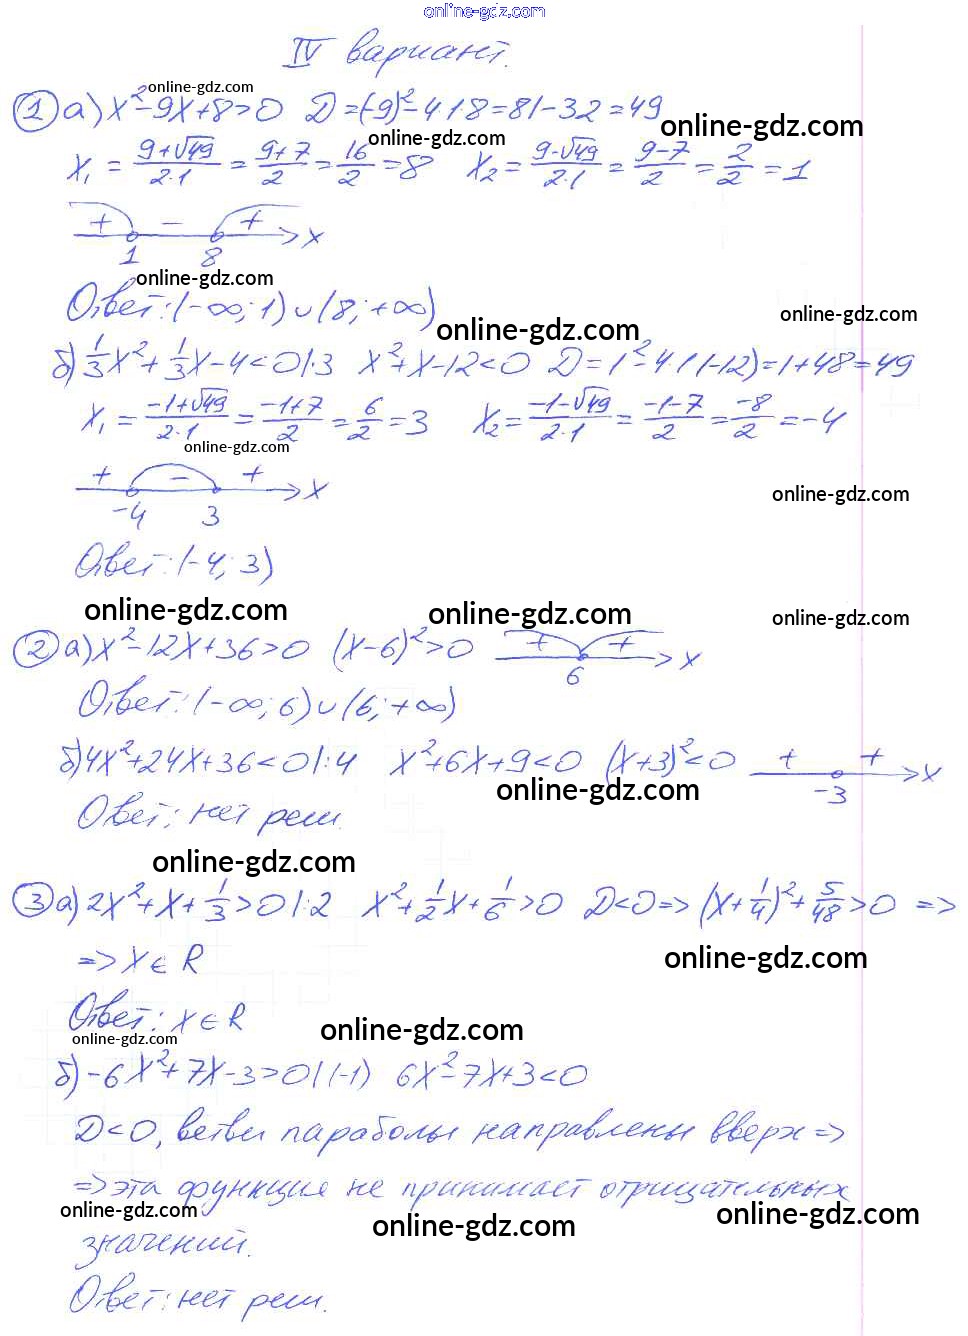 online-gdz.com
IV вариант.
online-gdz.com
① а) x²-9x+8>0 D=(-9)²-4·1·8=81-32=49
online-gdz.com online-gdz.com
x₁ = (9+√49)/(2·1) = (9+7)/2 = 16/2 = 8 x₂ = (9-√49)/(2·1) = (9-7)/2 = 2/2 = 1
+ - + x
1 8
online-gdz.com
Ответ: (-∞; 1) ∪ (8; +∞)
online-gdz.com online-gdz.com
б) 1/3x² + 1/3x - 4 < 0 |·3 x²+x-12<0 D=1²-4·1·(-12)=1+48=49
x₁ = (-1+√49)/(2·1) = (-1+7)/2 = 6/2 = 3 x₂ = (-1-√49)/(2·1) = (-1-7)/2 = -8/2 = -4
online-gdz.com
+ - + x
-4 3
online-gdz.com
Ответ: (-4; 3)
online-gdz.com online-gdz.com online-gdz.com
② а) x²-12x+36>0 (x-6)²>0 + + x
6
Ответ: (-∞; 6) ∪ (6; +∞)
б) 4x²+24x+36<0 |:4 x²+6x+9<0 (x+3)²<0 + + x
-3
online-gdz.com
Ответ: нет реш.
online-gdz.com
③ а) 2x²+x+1/3>0 |:2 x²+1/2x+1/6>0 D<0 => (x+1/4)²+5/48>0 =>
=> x ∈ R
online-gdz.com
Ответ: x ∈ R
online-gdz.com online-gdz.com
б) -6x²+7x-3>0 |·(-1) 6x²-7x+3<0
D<0, ветви параболы направлены вверх =>
=> эта функция не принимает отрицательных
online-gdz.com online-gdz.com online-gdz.com
значений.
Ответ: нет реш.